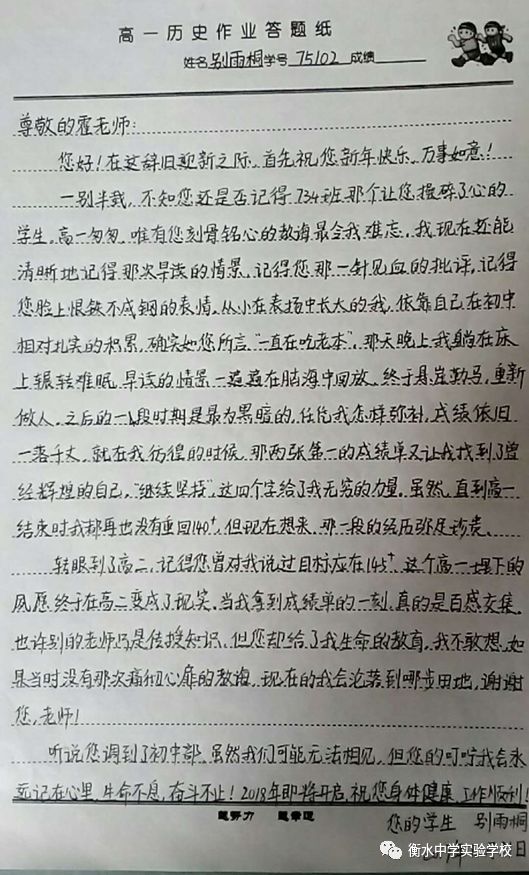 高一历史作业答题纸
姓名 别雨桐 学号 75102 成绩
尊敬的霍老师：
您好！在这辞旧迎新之际，首先祝您新年快乐，万事如意！
一别半载，不知您还是否记得734班那个让您操碎了心的
学生。高一匆匆，唯有您刻骨铭心的教诲最令我难忘。我现在还能
清晰地记得那次早读的情景，记得您那一针见血的批评，记得
您脸上恨铁不成钢的表情。从小在表扬中长大的我，依靠自己在初中
相对扎实的积累，确实如您所言“一直在吃老本”，那天晚上我躺在床
上辗转难眠，早读的情景一遍遍在脑海中回放，终于悬崖勒马，重新
做人。之后的一段时期是最为黑暗的，任凭我怎样弥补，成绩依旧
一落千丈，就在我彷徨的时候，那两张第一的成绩单又让我找到了曾
经辉煌的自己，“继续坚持”这四个字给了我无穷的力量。虽然，直到高一
结束时我都再也没有重回140⁺，但现在想来，那一段的经历弥足珍贵。
转眼到了高二，记得您曾对我说过目标应在145⁺，这个高一埋下的
夙愿终于在高二变成了现实，当我拿到成绩单的一刻，真的是百感交集，
也许别的老师只是传授知识，但您却给了我生命的教育，我不敢想，如
果当时没有那次痛彻心扉的教诲，现在的我会沦落到哪步田地，谢谢
您，老师！
听说您调到了初中部，虽然我们可能无法相见，但您的叮咛我会永
远记在心里，生命不息，奋斗不止！2018年即将开启，祝您身体健康，工作顺利！
您的学生 别雨桐
日
衡水中学实验学校